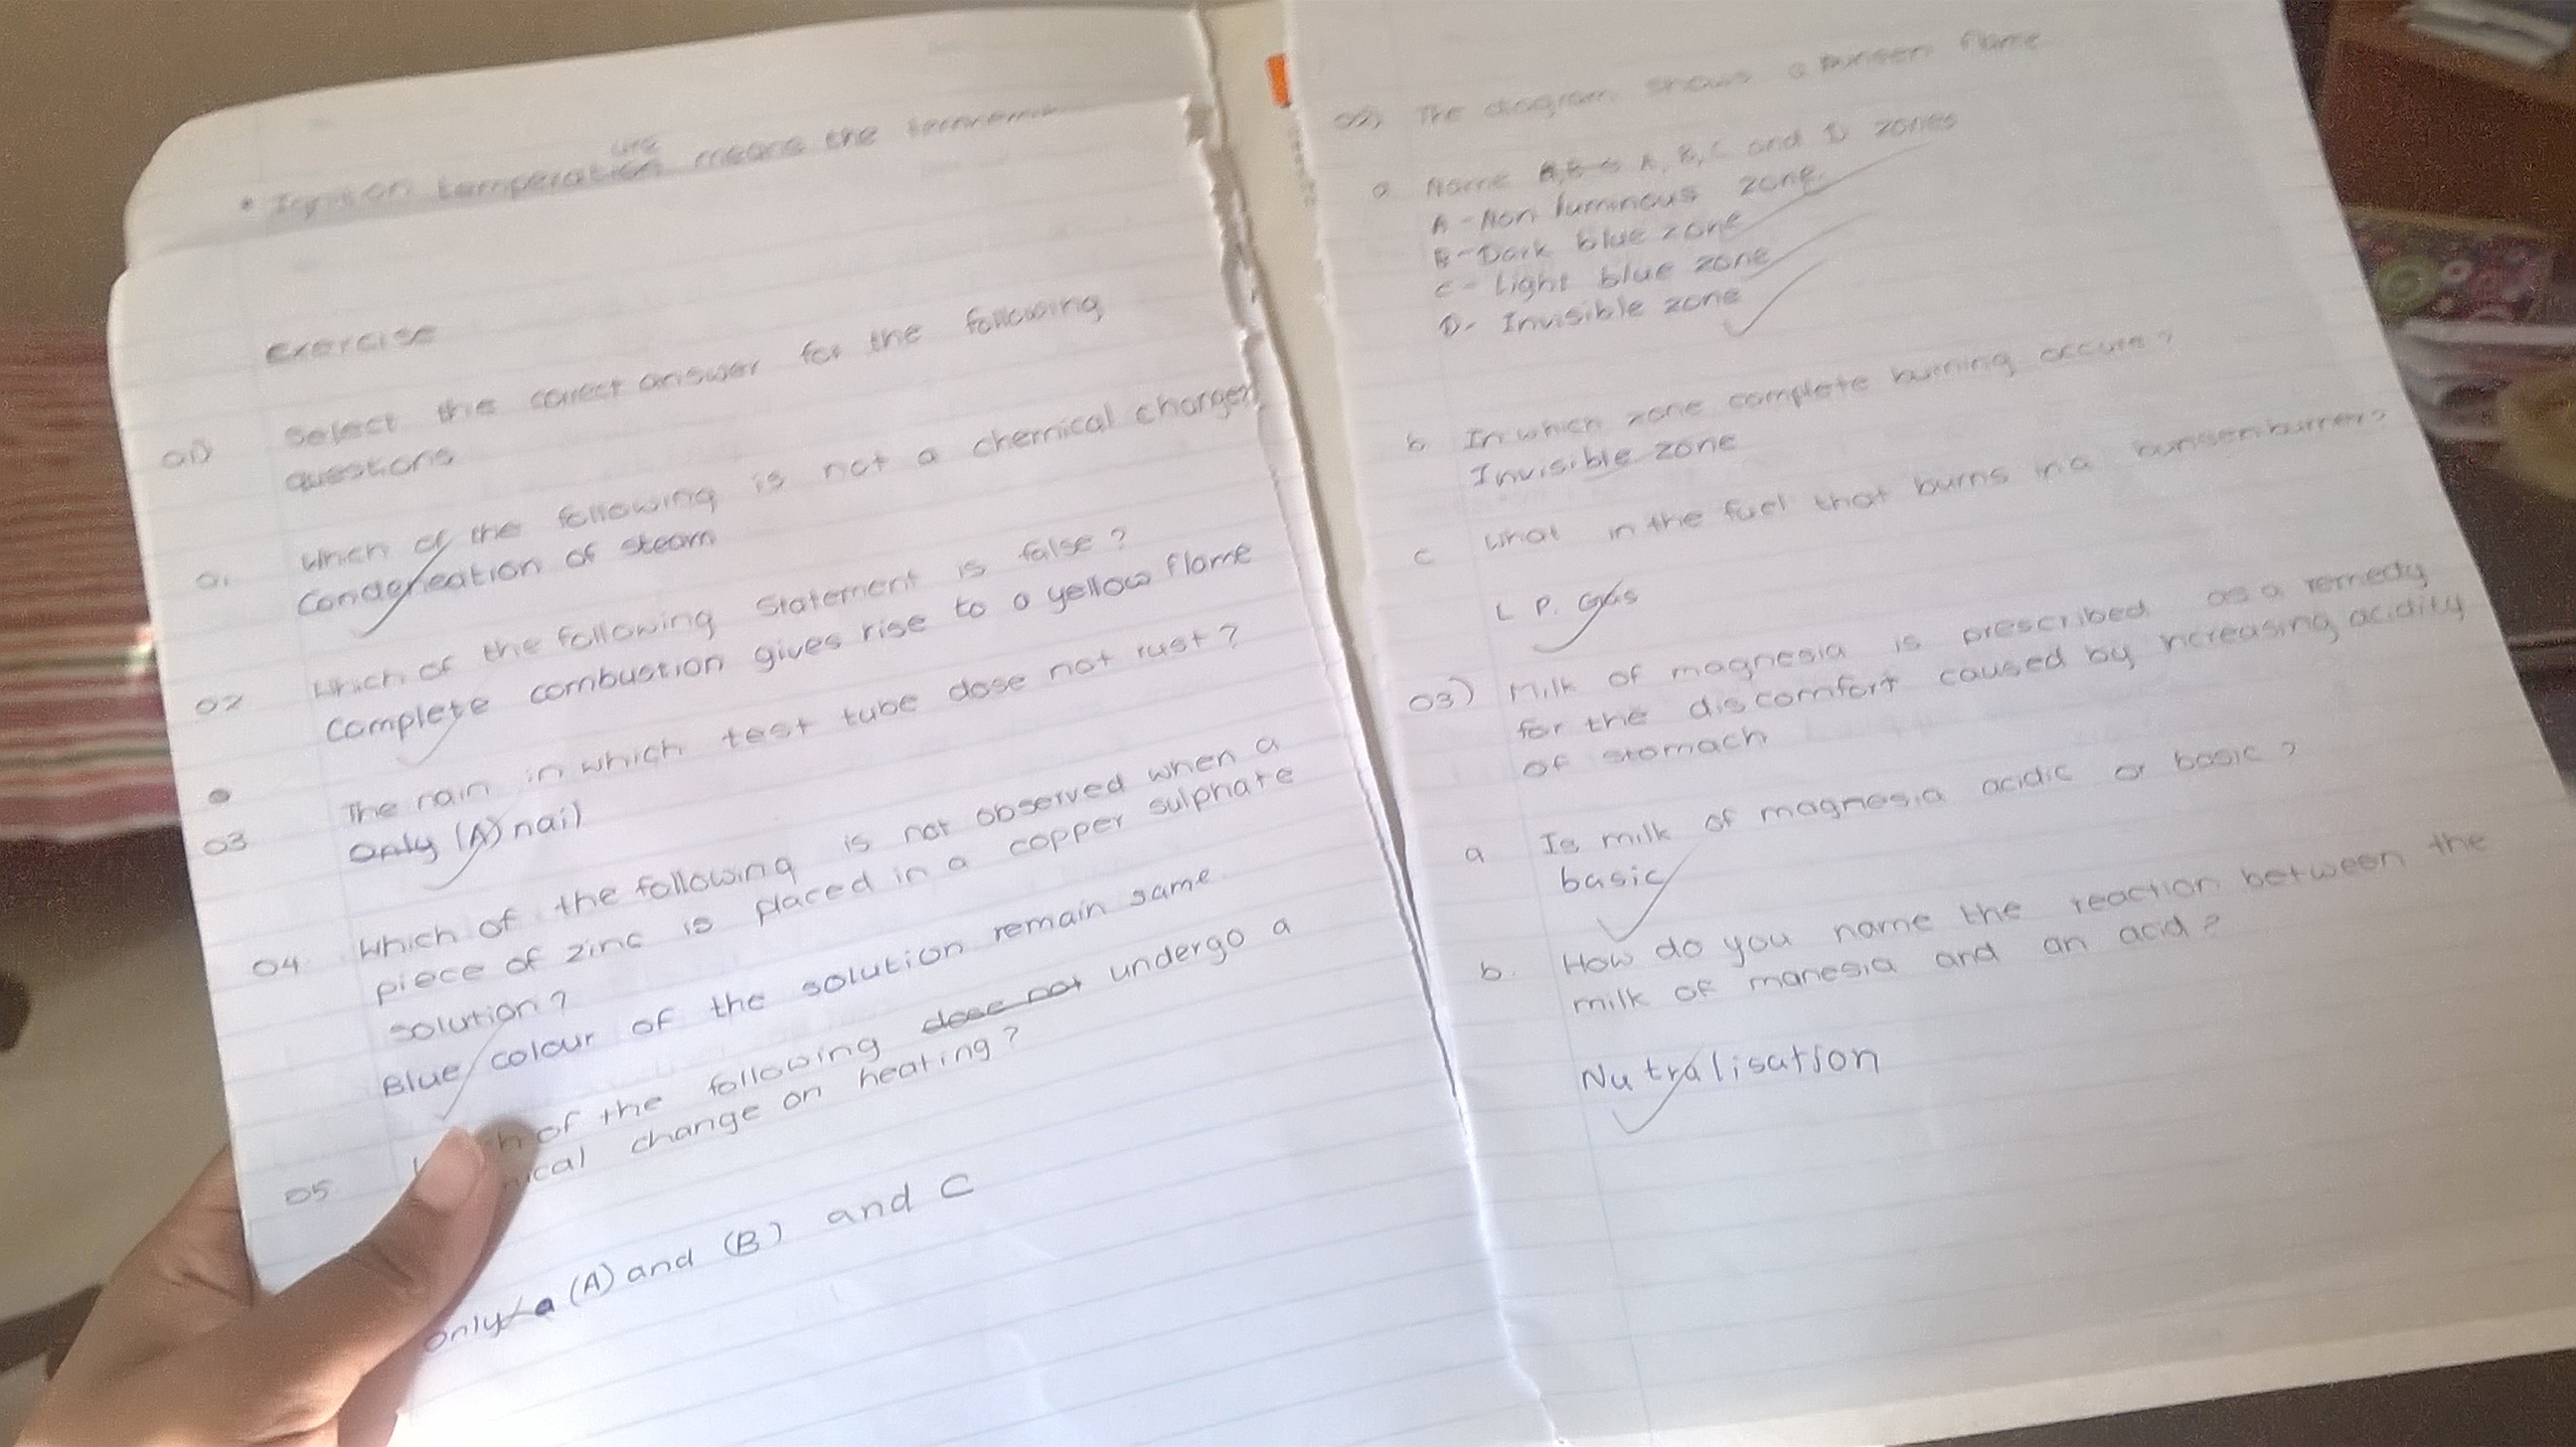 • Ignition temperation means the
ure
Exercise
01) Select the correct answer for the following
questions
01 Which of the following is not a chemical change?
Condensation of steam
02 Which of the following Statement is false?
Complete combustion gives rise to a yellow flame
03 The nain in which test tube dose not rust?
Only (A) nail
04 Which of the following is not observed when a
piece of zinc is placed in a copper sulphate
solution?
Blue colour of the solution remain same
05 of the following dose not undergo a
change on heating?
Only (A) and (B) and C
02) The diagram shows a bunsen flame
a Name A, B, C and D zones
A - Non luminous zone
B - Dark blue zone
C - Light blue zone
D - Invisible zone
b In which zone complete burning occurs?
Invisible zone
c What in the fuel that burns in a bunsenburner?
L P. Gas
03) Milk of magnesia is prescribed as a remedy
for the discomfort caused by increasing acidity
of stomach
a Is milk of magnesia acidic or basic?
basic
b. How do you name the reaction between the
milk of manesia and an acid?
Nutralisation